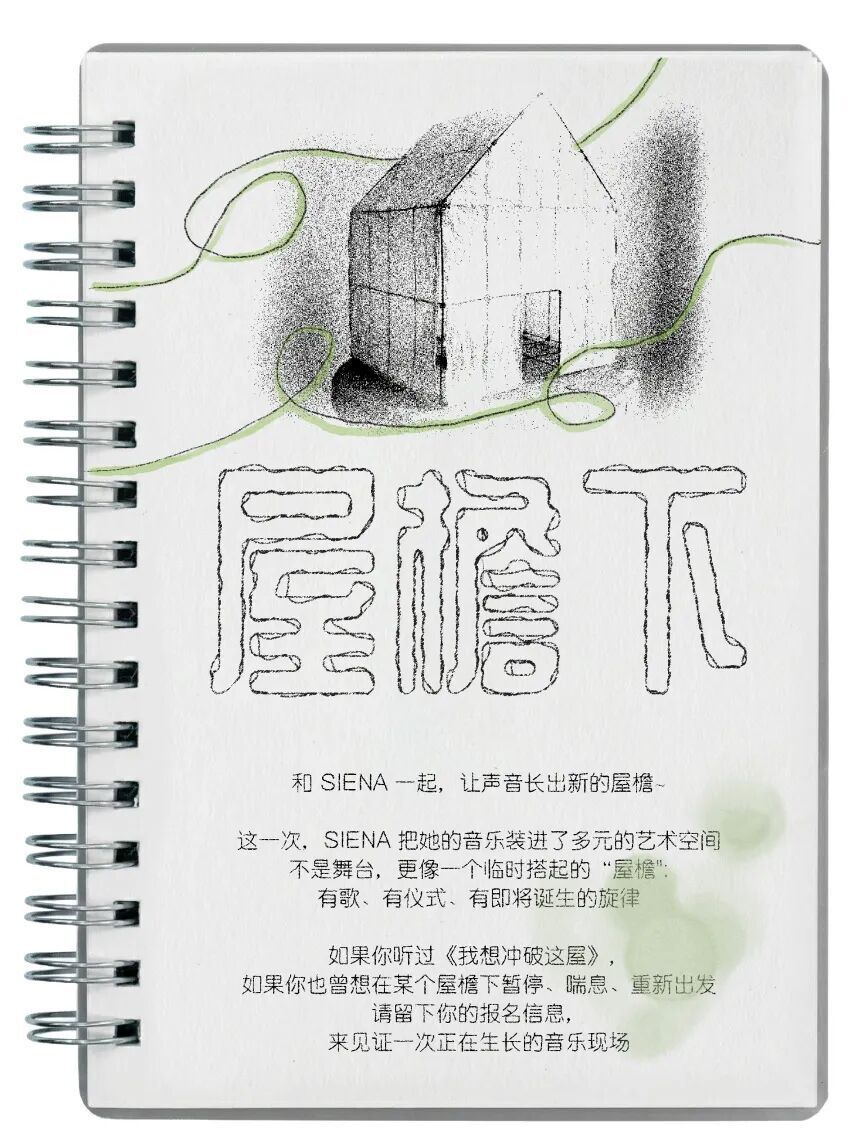 屋檐下
和 SIENA 一起，让声音长出新的屋檐~
这一次，SIENA 把她的音乐装进了多元的艺术空间
不是舞台，更像一个临时搭起的“屋檐”：
有歌、有仪式、有即将诞生的旋律
如果你听过《我想冲破这屋》，
如果你也曾想在某个屋檐下暂停、喘息、重新出发
请留下你的报名信息，
来见证一次正在生长的音乐现场